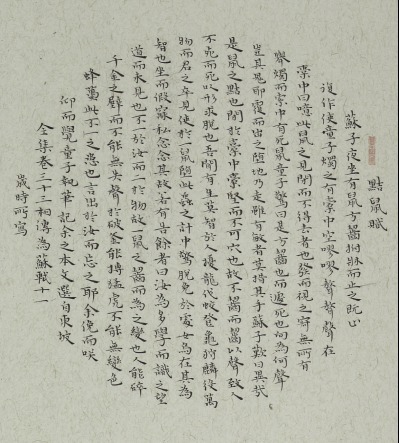 黠鼠賦
蘇子夜坐有鼠方齧拊牀而止之既止
復作使童子燭之有橐中空嘐嘐聱聱聲在
橐中曰嘻此鼠之見閉而不得去者也發而視之寂無所有
舉燭而索中有死鼠童子驚曰是方齧也而遽死也向為何聲
豈其鬼耶覆而出之墮地乃走雖有敏者莫措其手蘇子歎曰異哉
是鼠之黠也閉於橐中橐堅而不可穴也故不齧而齧以聲致人
不死而死以形求脫也吾聞有生莫智於人擾龍伐蛟登龜狩麟役萬
物而君之卒見使於一鼠墮此蟲之計中驚脫兔於處女烏在其為
智也坐而假寐私念念其故若有告餘者曰汝為多學而識之望
道而未見也不一於汝而二於物故一鼠之齧而為之變也人能碎
千金之璧而不能無失聲於破釜能搏猛虎不能無變色
蜂蠆此不一之患也言出於汝而忘之耶余俛而咲
仰而覺童子執筆記余之本文選自東坡
全集卷三十三相傳為蘇軾十一
歲時所寫